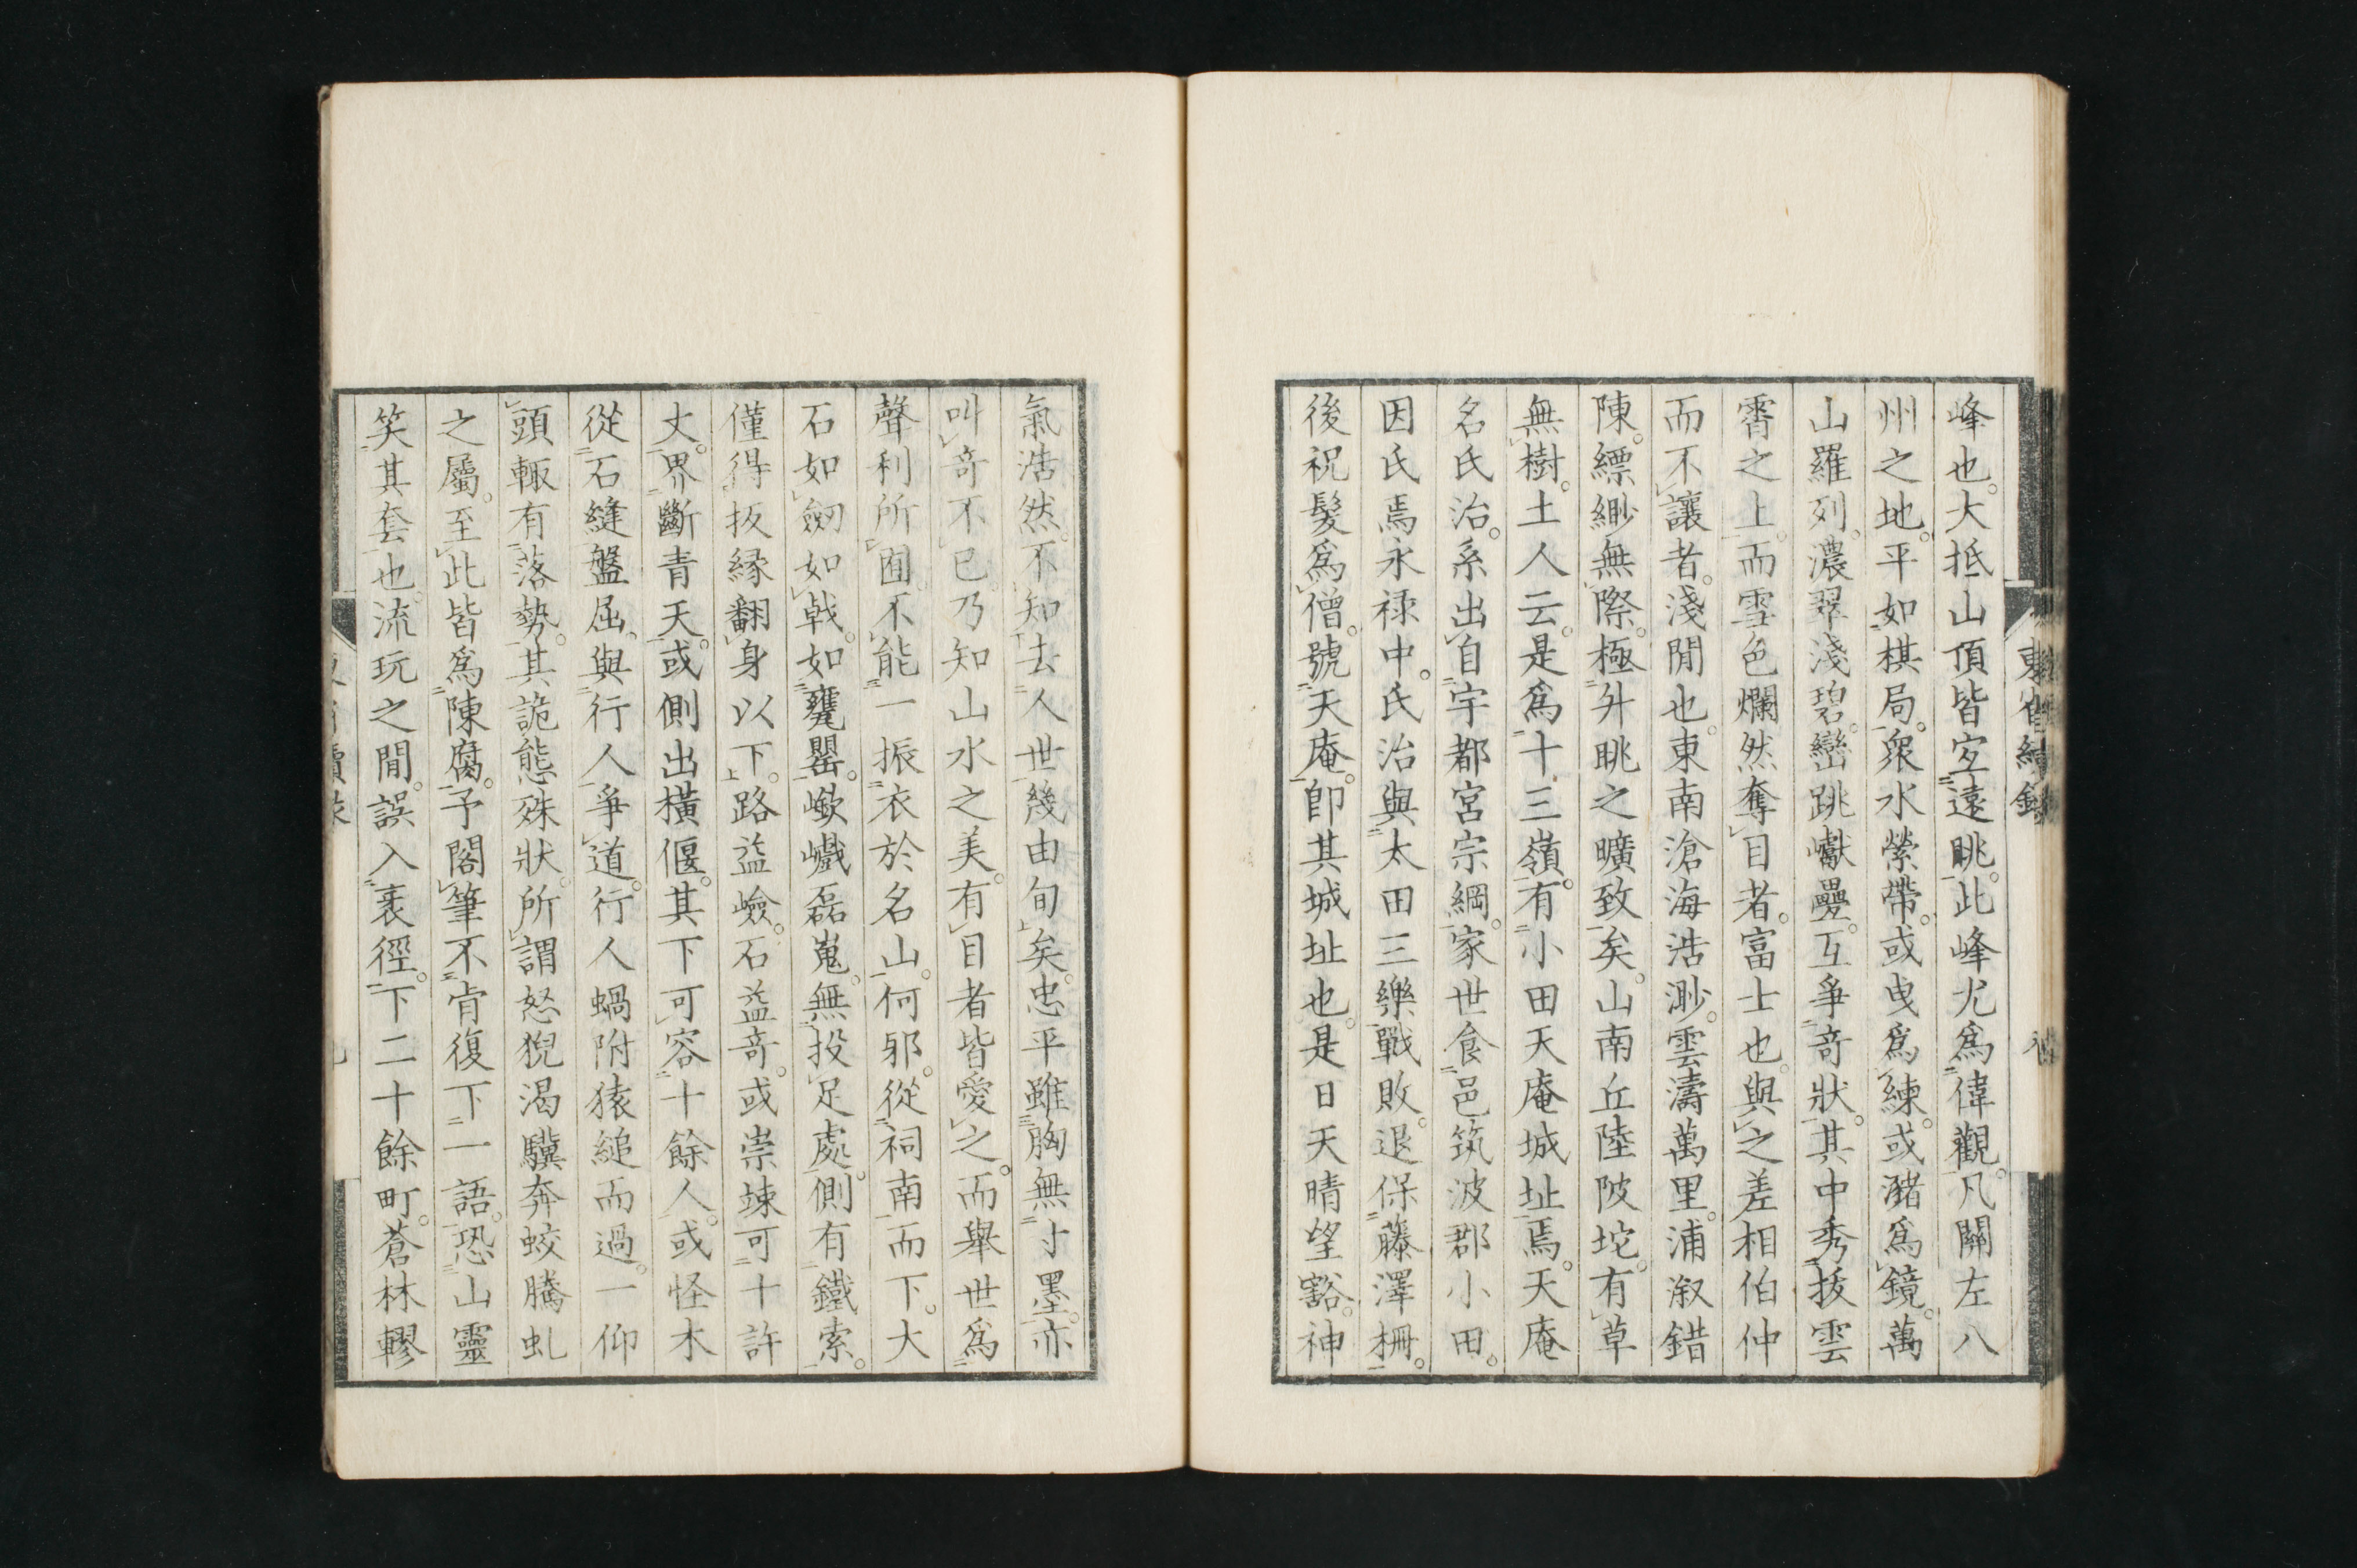 峰也。大抵山頂皆宜遠眺。此峰尤爲偉觀。凡關左八
州之地。平如棋局。衆水縈帶。或曳爲練。或瀦爲鏡。萬
山羅列。濃翠淺碧。巒跳巘疊。互爭奇狀。其中秀拔雲
霄之上。而雪色爛然奪目者。富士也。與之差相伯仲
而不讓者。淺間也。東南滄海浩渺。雲濤萬里。浦溆錯
陳。縹緲無際。極外眺之曠致矣。山南丘陸陂坨。有草
無樹。土人云。是爲十三嶺。有小田天庵城址焉。天庵
名氏治。系出自宇都宮宗綱。家世食邑筑波郡小田。
因氏焉永祿中。氏治與太田三樂戰敗。退保藤澤柵。
後祝髮爲僧。號天庵。卽其城址也。是日天晴望豁。神
氣浩然。不知去人世幾由旬矣。忠平雖胸無寸墨。亦
叫奇不已。乃知山水之美。有目者皆愛之。而舉世爲
聲利所囿。不能一振衣於名山。何邪。從祠南而下。大
石如劒如戟。如甕罌。嶔巇磊嵬。無投足處。側有鐵索。
僅得扳緣翻身以下。路益嶮。石益奇。或崇竦可十許
丈。界斷青天。或側出橫偃。其下可容十餘人。或怪木
從石縫盤屈。與行人爭道。行人蝸附猿縋而過。一仰
頭輙有落勢。其詭態殊狀。所謂怒猊渴驥奔蛟騰虬
之屬。至此皆爲陳腐。予閣筆不肯復下一語。恐山靈
笑其套也。流玩之間。誤入袤徑。下二十餘町。蒼林轇